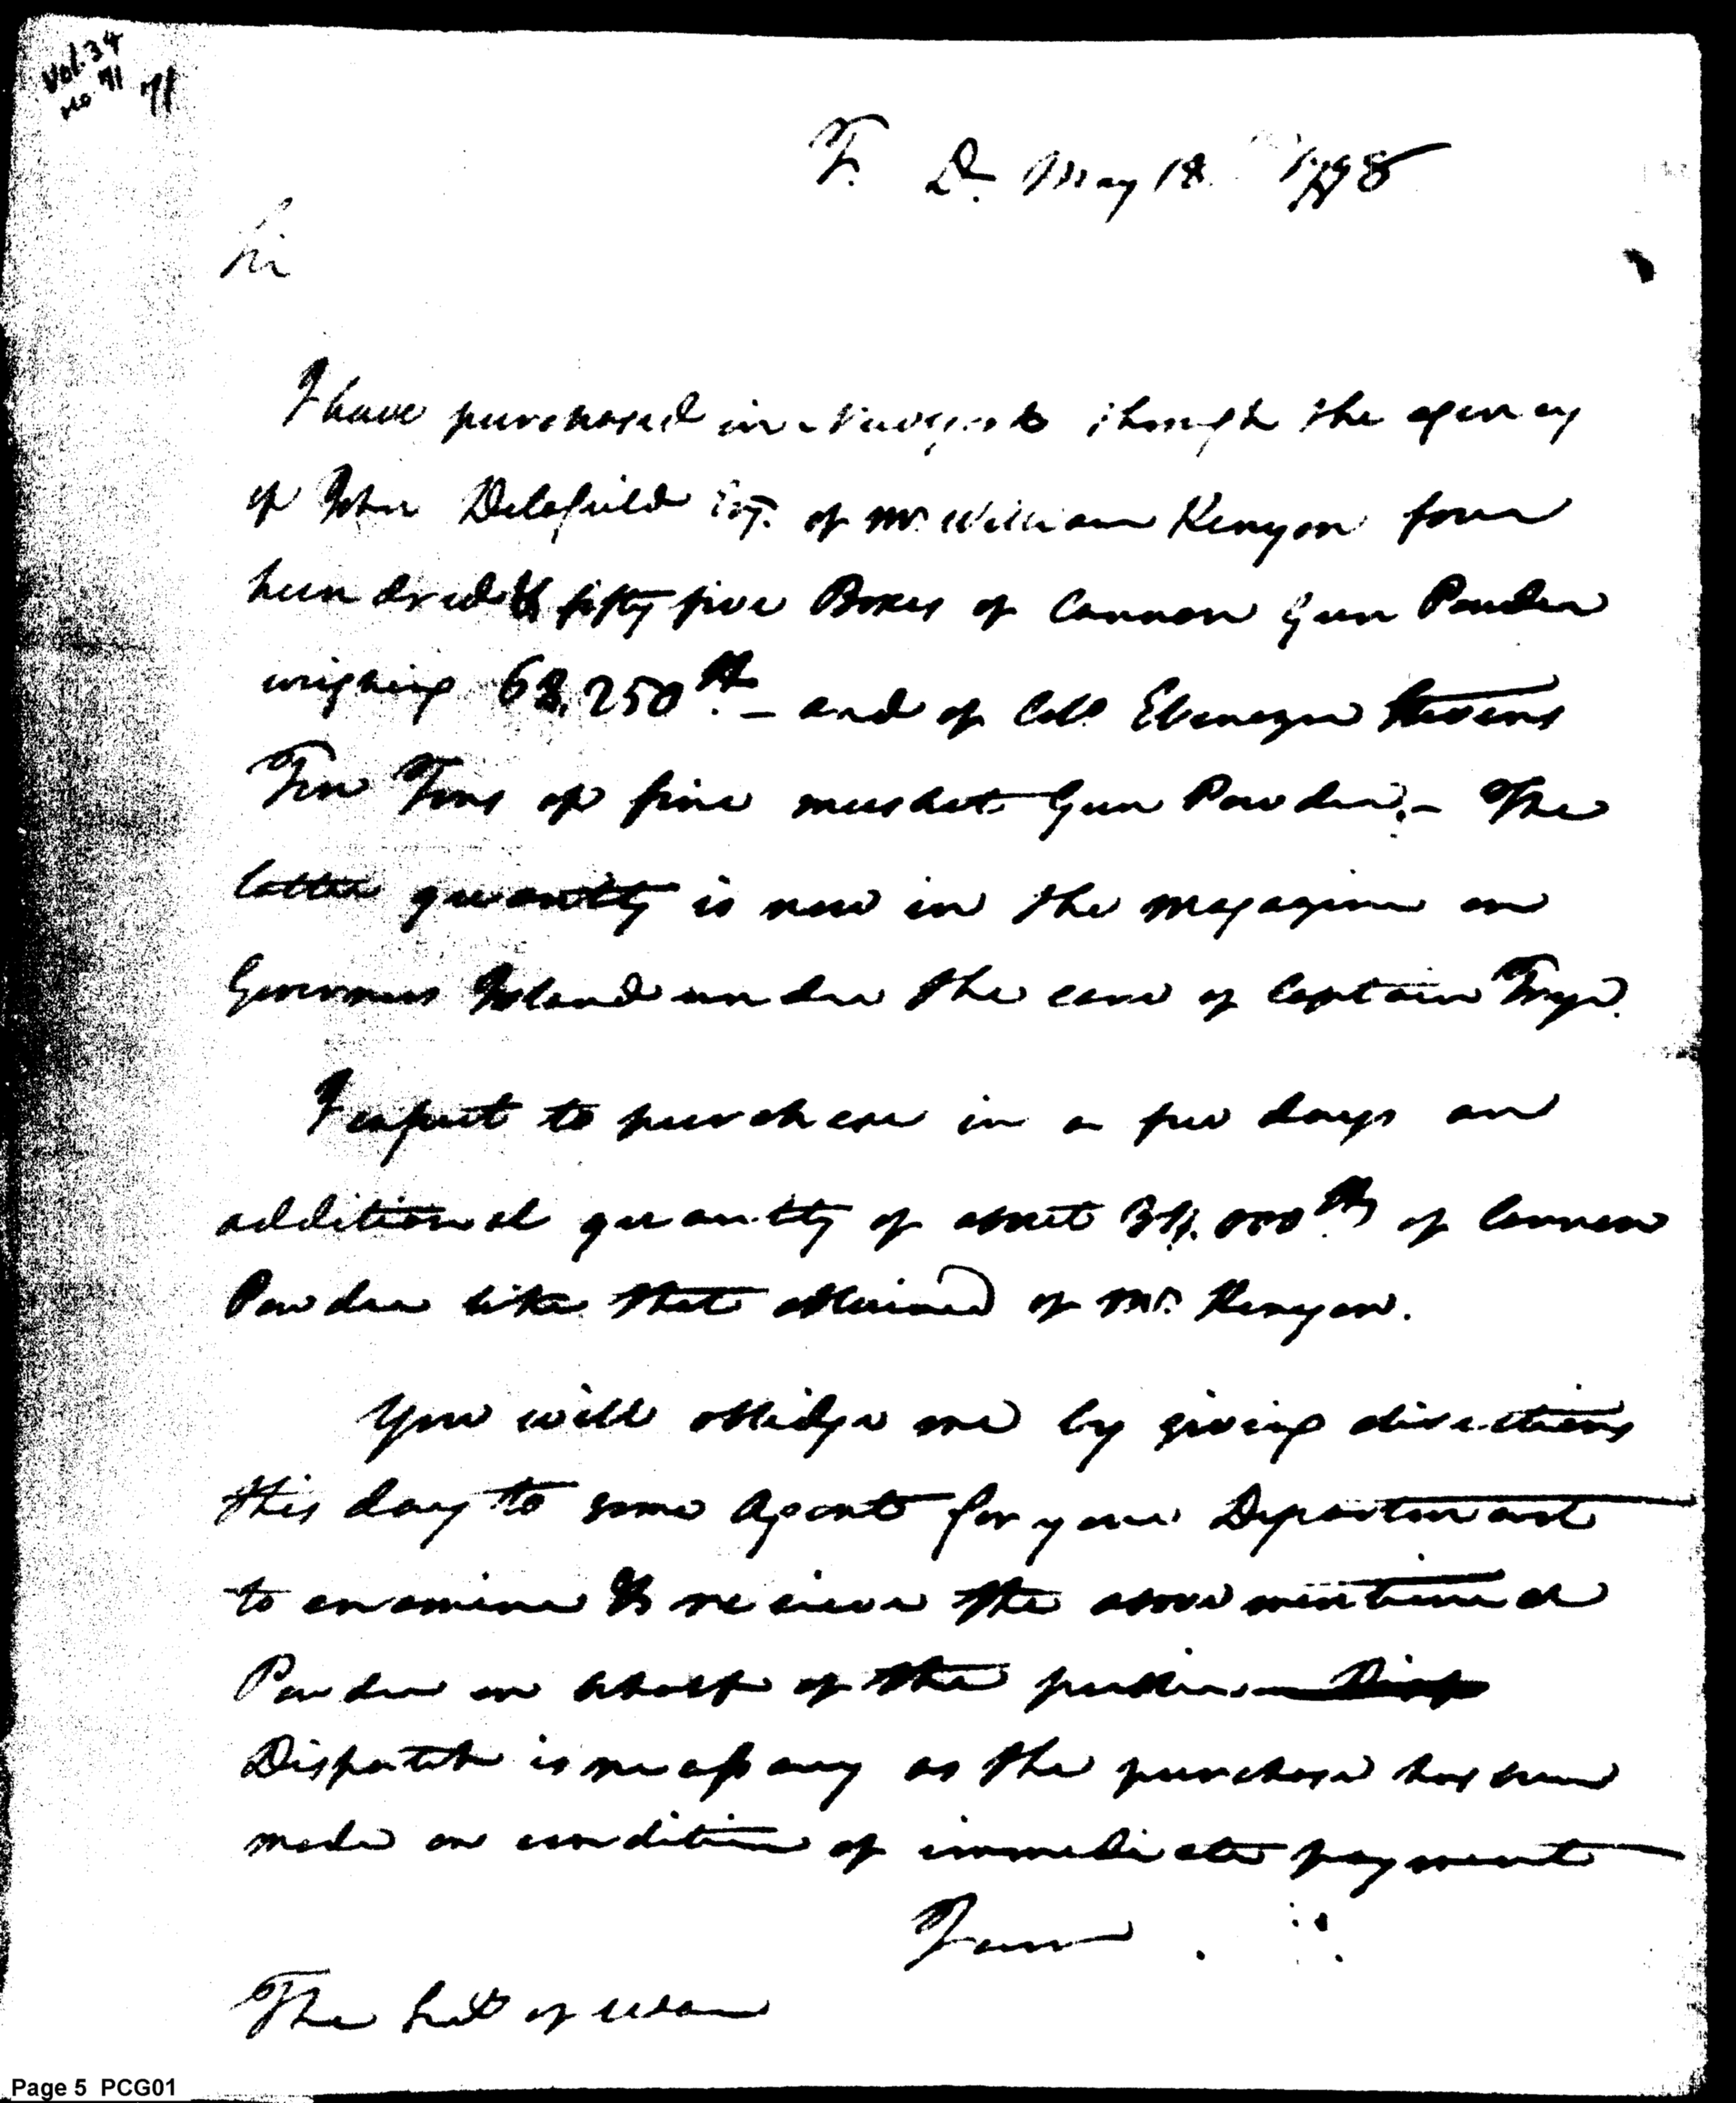 Vol. 34
No 71 71
T. D. May 18. 1798
Sir
I have purchased in New York through the agency
of John Delafield Esq. of Mr. William Kenyon four
hundred & fifty five Boxes of Cannon Gun Powder
weighing 63,250 lb. – and of Coll. Ebenezer Stevens
Ten Tons of fine musket Gun Powder. – The
latter quantity is now in the magazine on
Governors Island under the care of Captain Frye.
I expect to purchase in a few days an
additional quantity of about lbs of Cannon
Powder like that obtained of Mr. Kenyon.
You will oblidge me by giving directions
this day to some Agent for your Department
to examine & receive the above mentioned
Powder on behalf of the public. – Disp
Dispatch is necessary as the purchase has been
made on condition of immediate payment
I am
The Sect of War
Page 5 PCG01